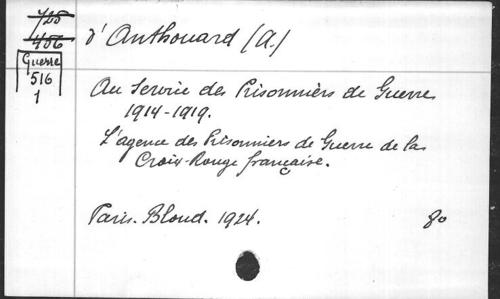 725
456
Guerre
516
1
d'Anthouard (A.)
Au Service des Prisonniers de Guerre
1914-1919.
L'agence des Prisonniers de Guerre de la
Croix-Rouge française.
Paris. Bloud. 1924. 8o